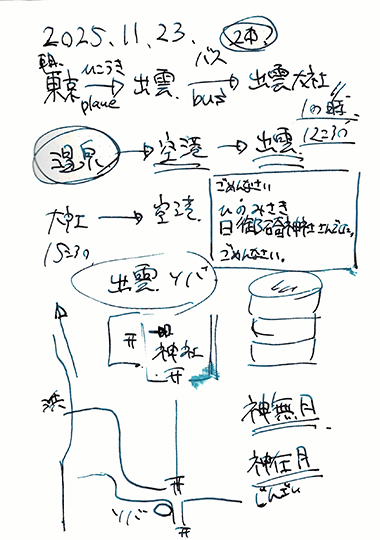 2025.11.23.
朝
東京 ひこうき plane 出雲 バス bus 出雲大社
1の時
12=30
温泉 空港 出雲
大社 空港
15=30
ごめんなさい
ひのみさき
日御碕神社
ごめんなさい。
出雲ソバ
神社
浜
神無月
神在月
じんざい
ソバ